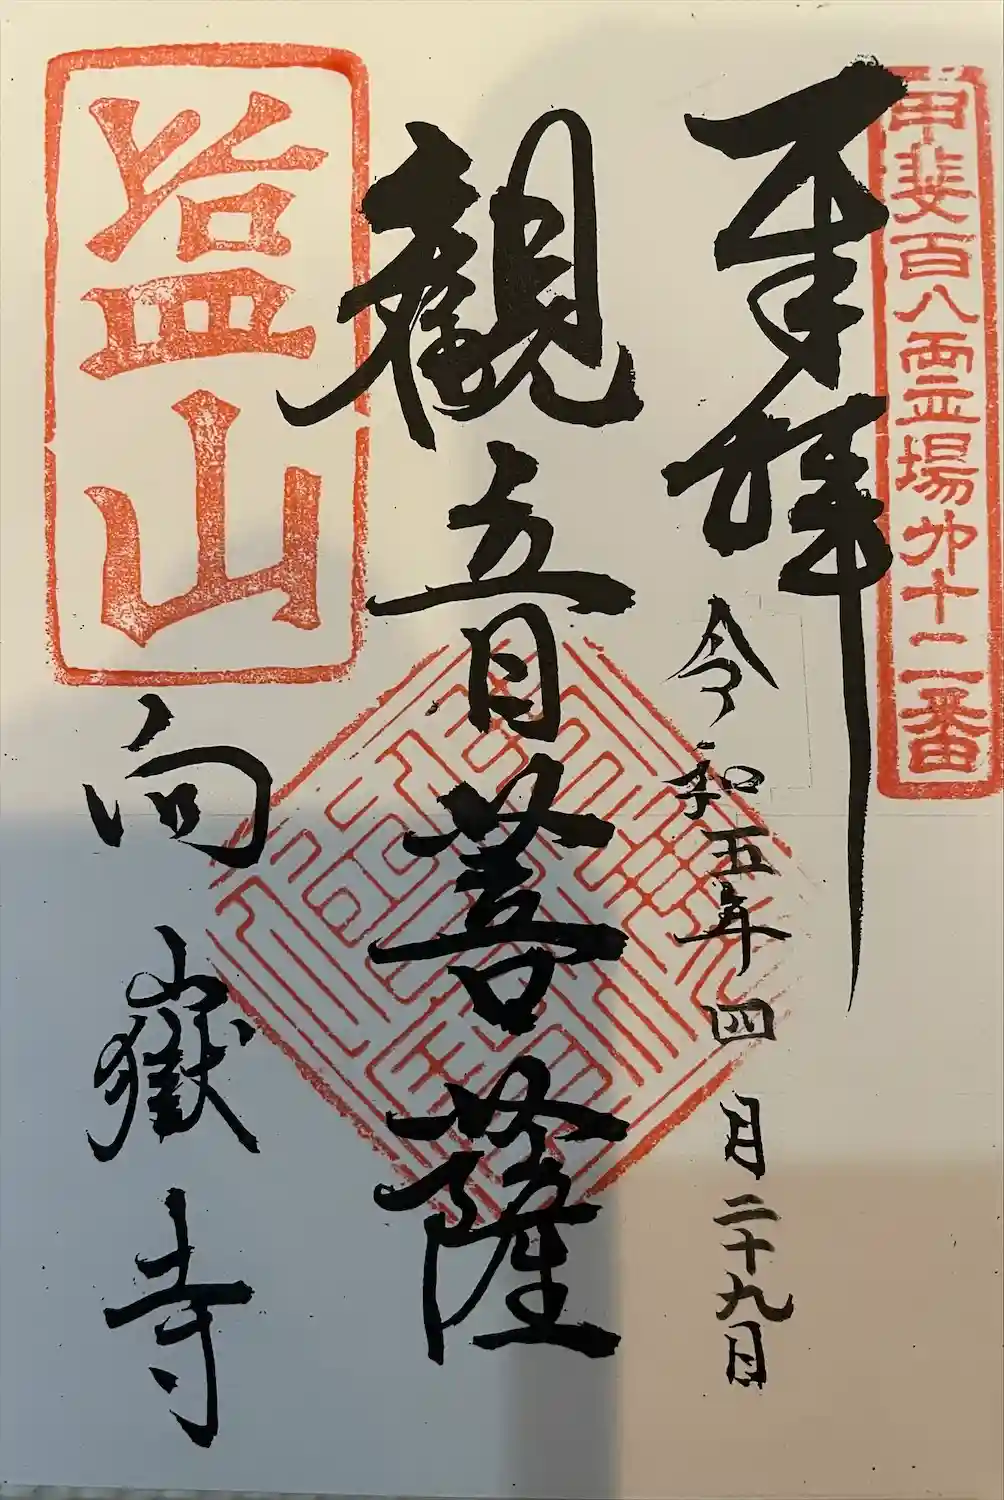 甲斐百八霊場第十二番
奉拝
令和五年四月二十九日
観音菩薩
塩山
向嶽寺